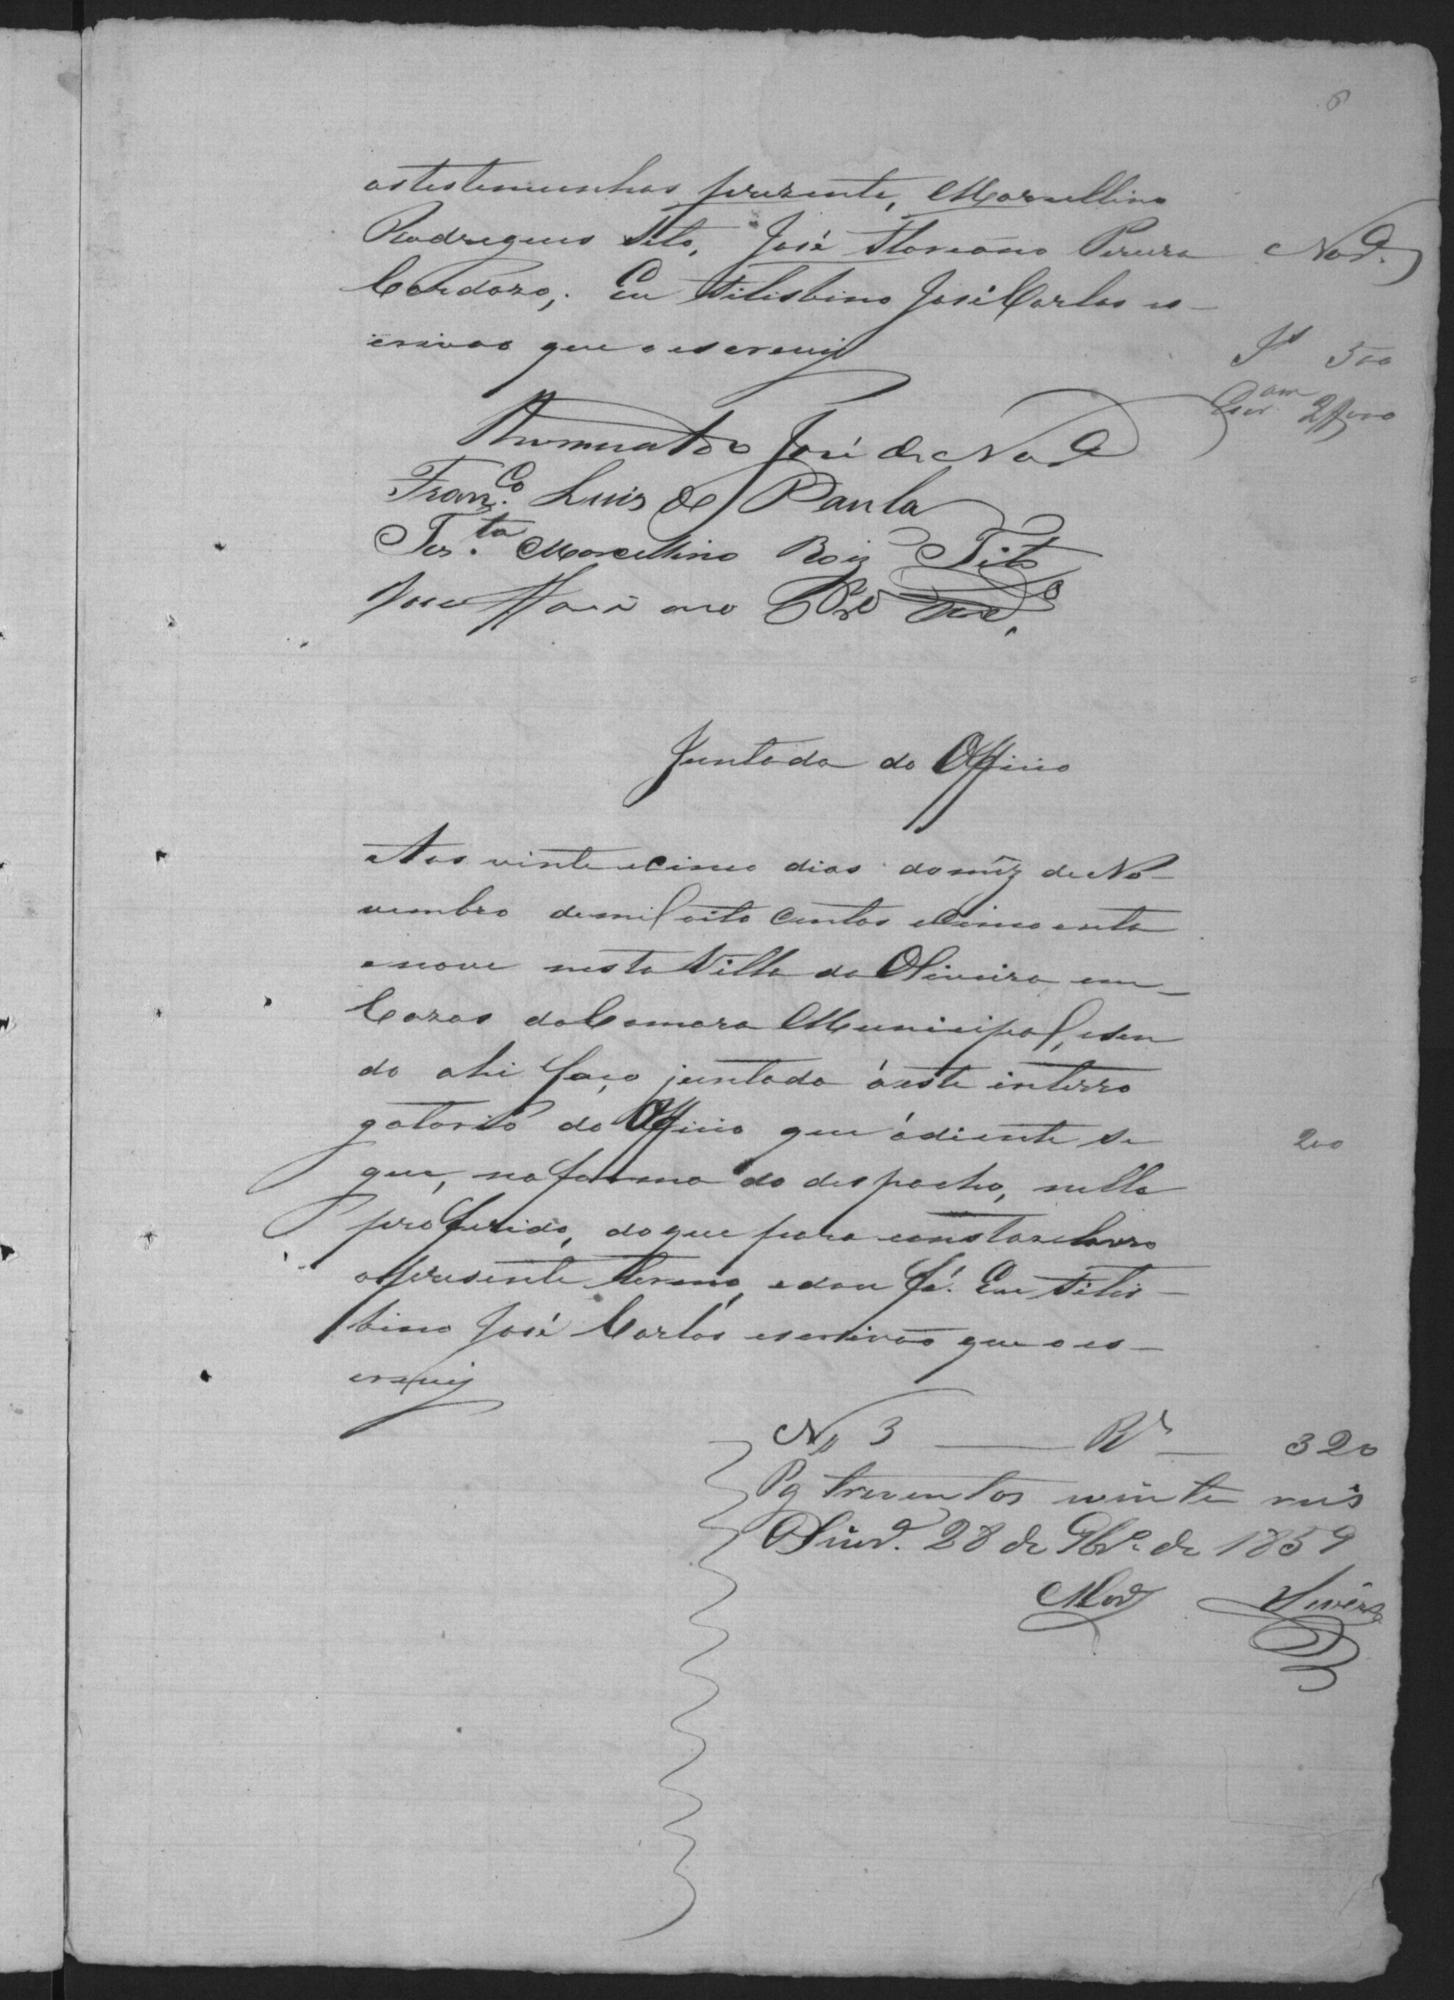 6
as testemunhas prezente, Marcellino
Rodrigues Tito, José Floreano Pereira
Cardozo; Eu Felisbino José Carlos es-
crivão que o escrevij
Nod.
Js 500
Escr.am 2$000
José de Nod
Fran.co Luis de Paula
Tes.ta Marcellino Roiz Tito
Jose Floriano Pra
Juntada do Officio
Aos vinte e cinco dias do mêz de No-
vembro de mil oito centos e cincoenta
e nove nesta Villa da Oliveira em-
Cazas da Camara Municipal, e sen
do ahi faço juntada á este interro
gatorio do Officio que ádiente se
gue, na forma do despacho, nelle
200
proferido, do que para constar lavro
o presente termo, e dou fé. Eu Felis-
bino José Carlos escrivão que o es-
crevij
N,, 3 — Rs — 320
Pg trezentos vinte reis
Olivr.a 28 de 9br.o de 1859